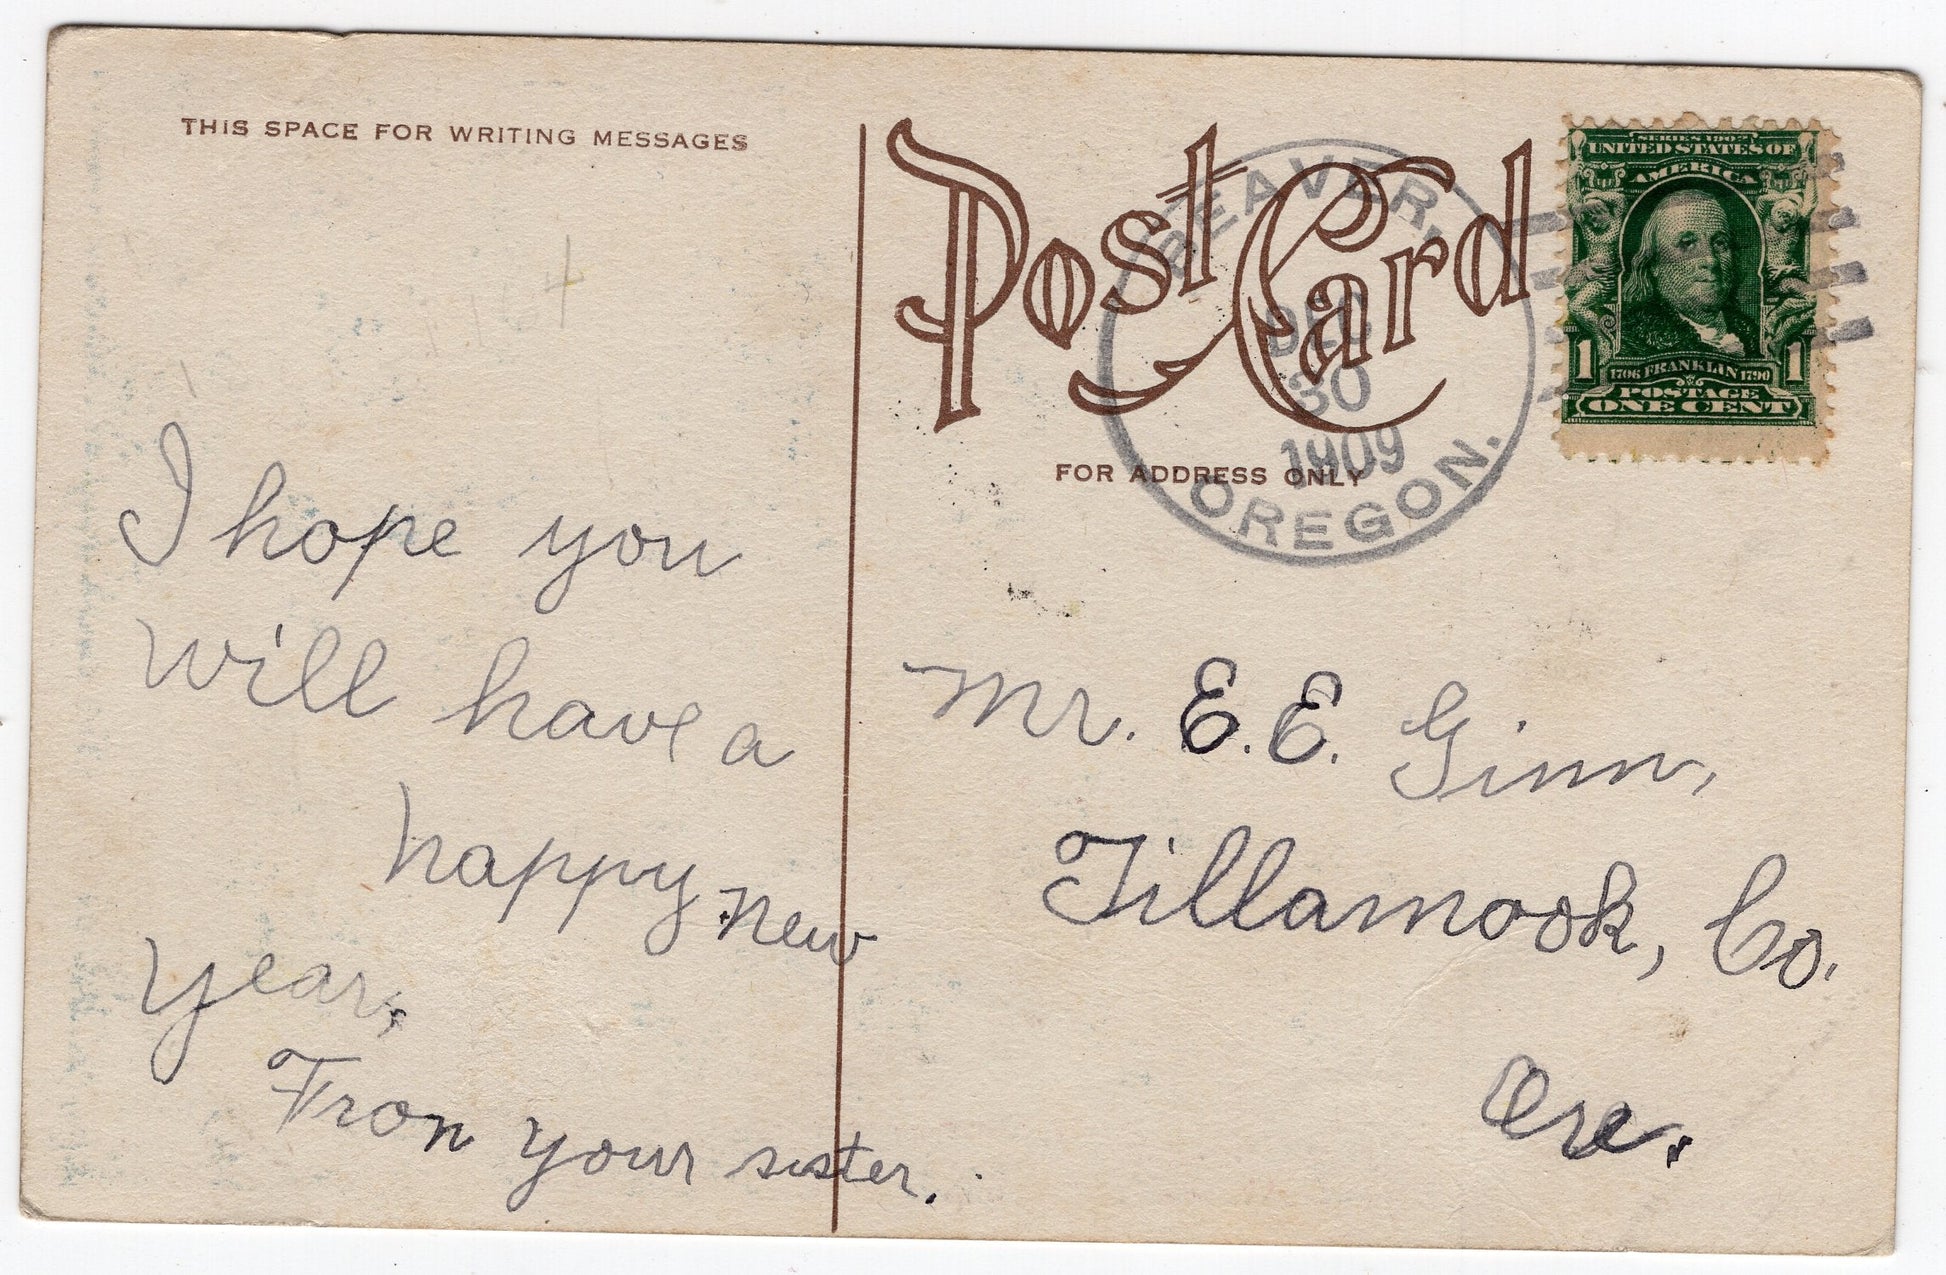 THIS SPACE FOR WRITING MESSAGES
Post Card
FOR ADDRESS ONLY
BEAVER,
DEC
30
1909
OREGON.
SERIES 1902
UNITED STATES OF
AMERICA
1 1706 FRANKLIN 1790 1
POSTAGE
ONE CENT
I hope you
will have a
happy new
year,
Fron your sister.
Mr. E. E. Ginn,
Tillamook, Co.
Ore.